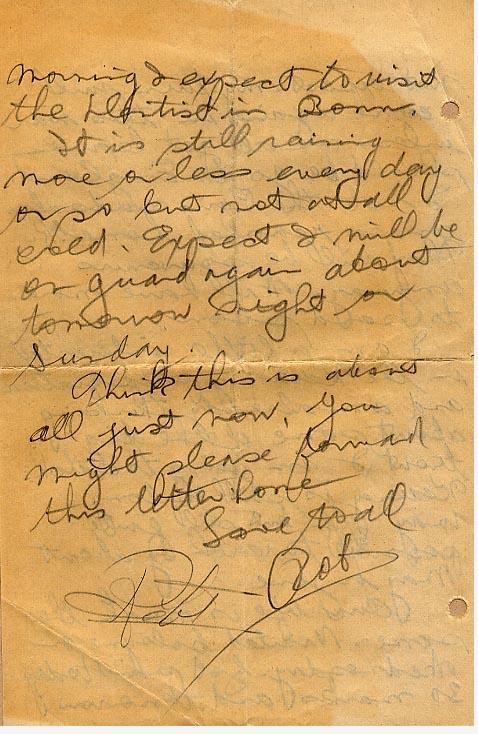 morning I expect to visit
the Dentist in Bonn.
It is still raining
more or less every day
or so but not at all
cold. Expect I will be
on guard again about
tomorrow night or
Sunday.
Think this is about
all just now, you
might please forward
this letter home
Love to all
Rob